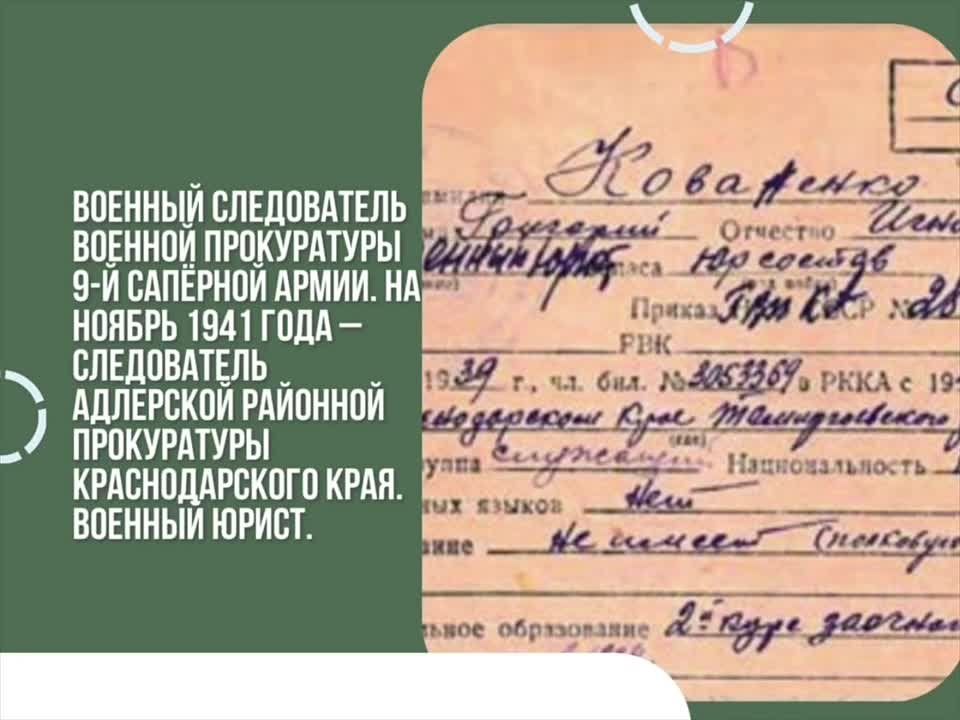 ВОЕННЫЙ СЛЕДОВАТЕЛЬ
ВОЕННОЙ ПРОКУРАТУРЫ
9-Й САПЁРНОЙ АРМИИ. НА
НОЯБРЬ 1941 ГОДА –
СЛЕДОВАТЕЛЬ
АДЛЕРСКОЙ РАЙОННОЙ
ПРОКУРАТУРЫ
КРАСНОДАРСКОГО КРАЯ.
ВОЕННЫЙ ЮРИСТ.
Коваленко
Григорий Отчество Игна
юрсостав
Приказ СССР № 28
РВК
1939 г., чл. бил. № 3053369 в РККА с 19
нодарском Крае
уппа служащий Национальность
ных языков Нет
ание Не имеет (полковую
ьное образование 2й курс заочно